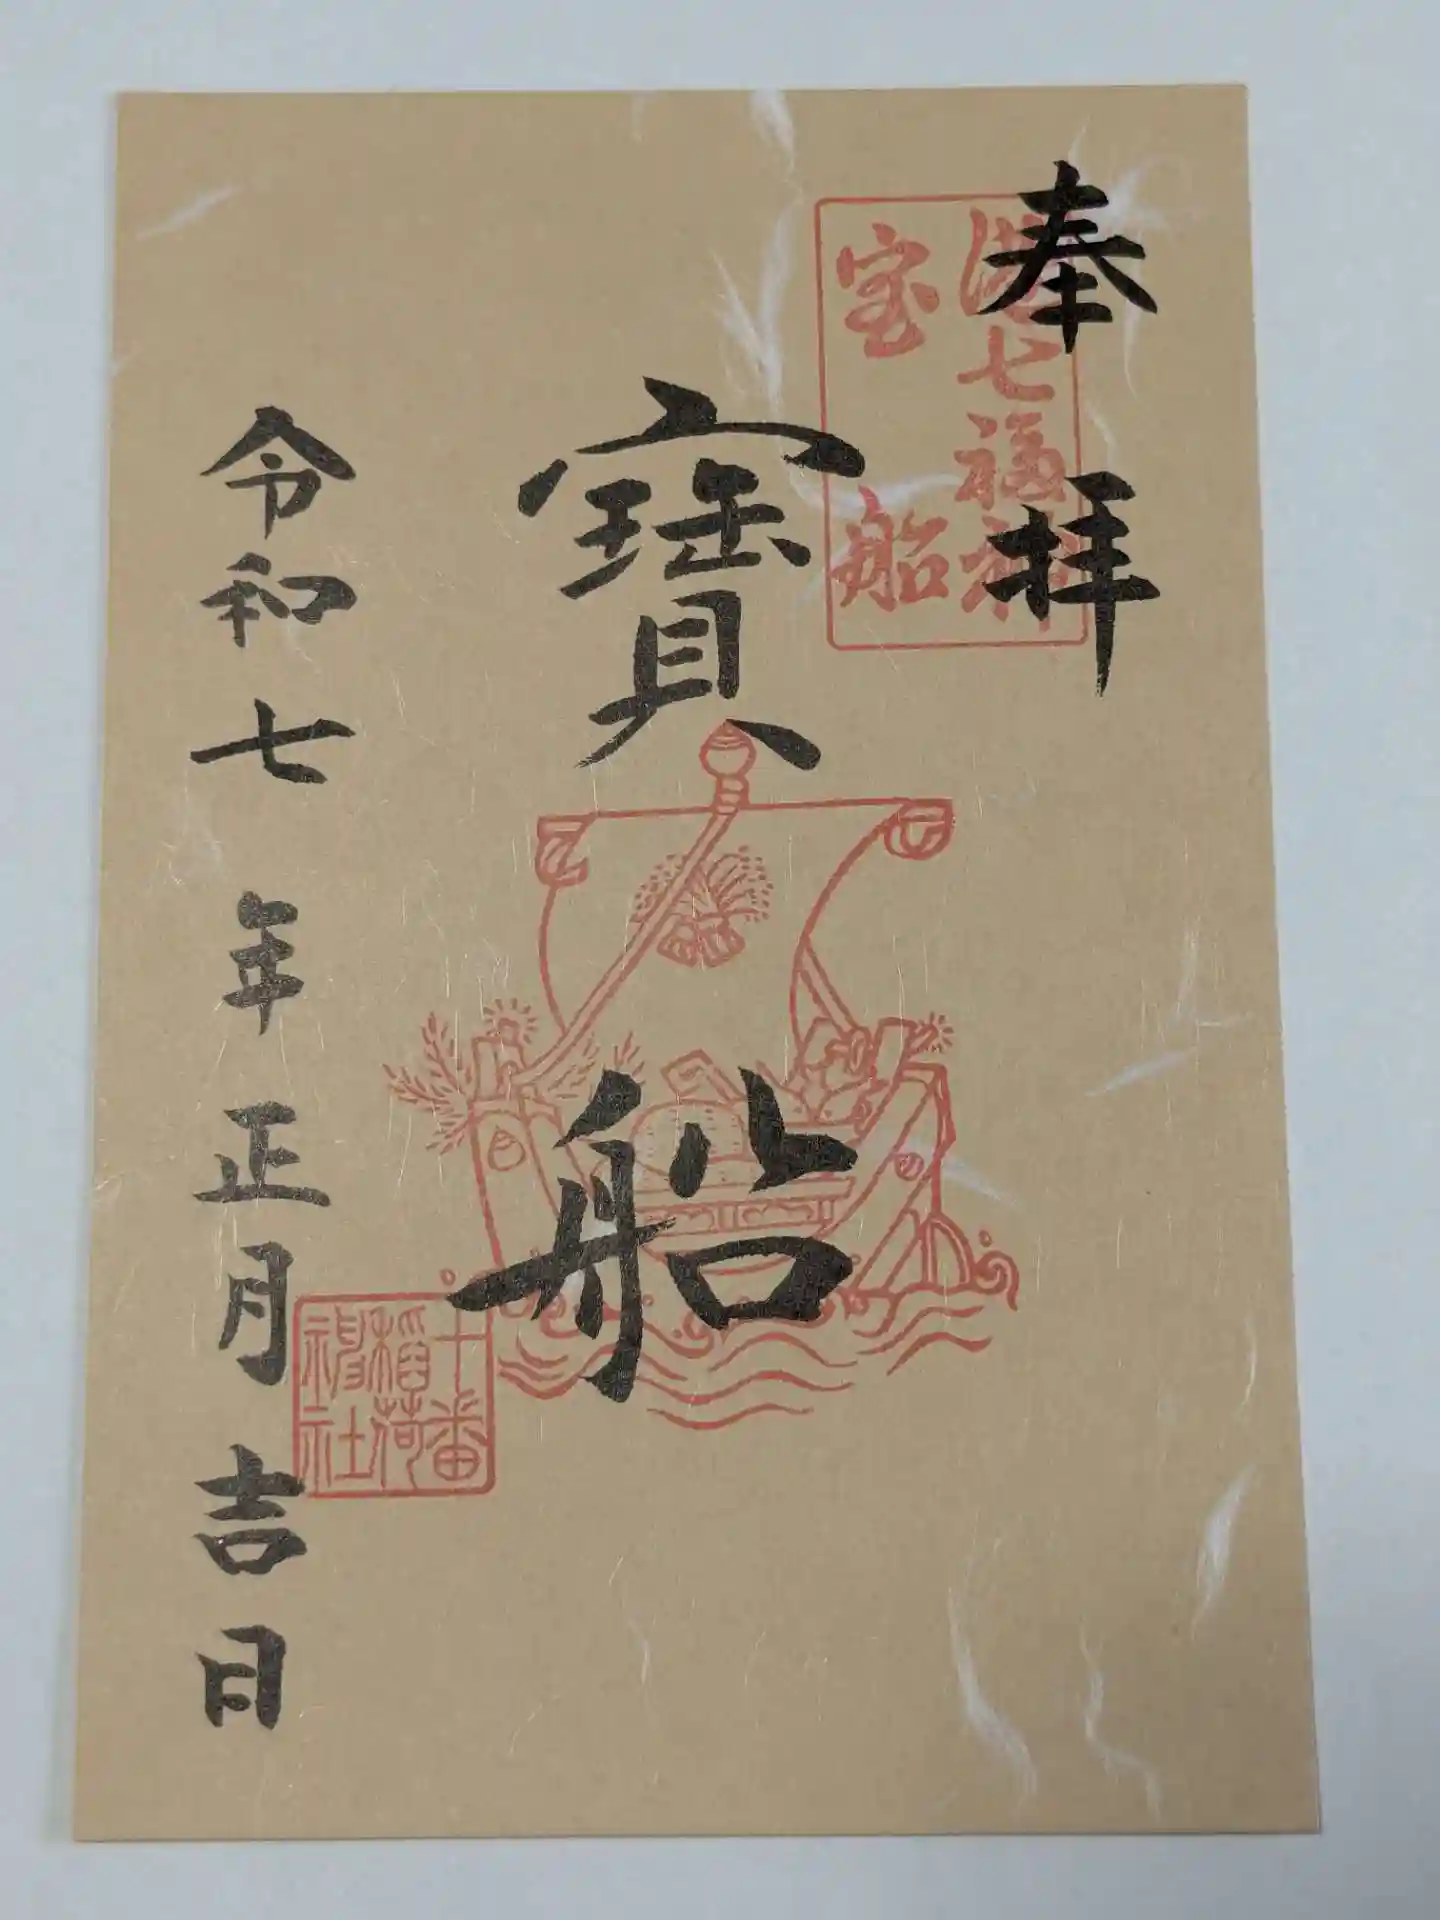 奉拝
港七福神
宝船
寳船
十番
稲荷
神社
令和七年正月吉日